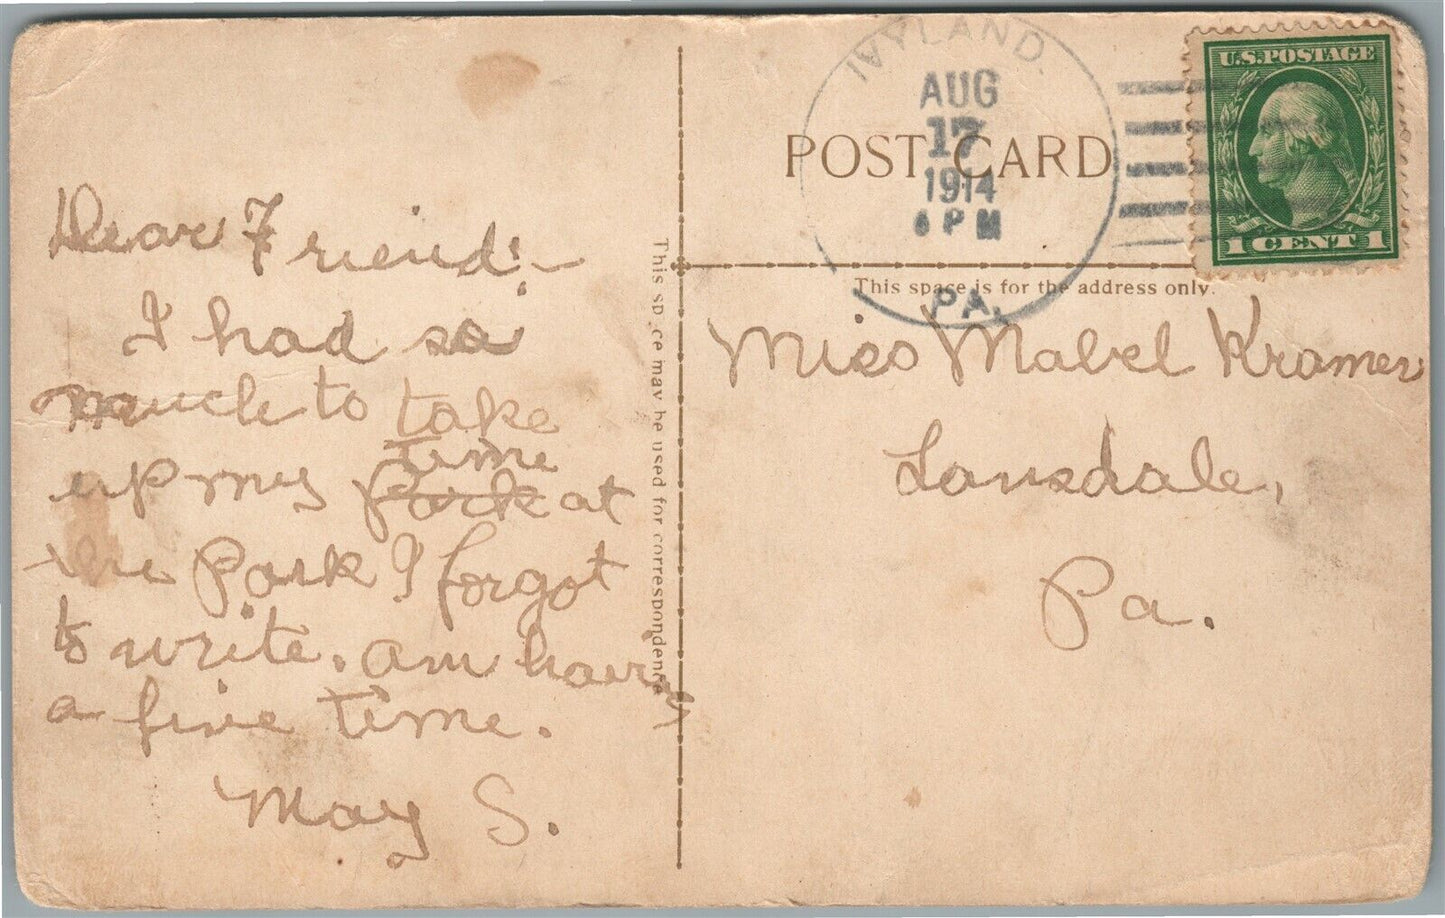 Dear Friend:—
I had so
much to take
time
up my Park at
the Park I forgot
to write. am having
a fine time.
May S.
This space may be used for correspondence
IVYLAND.
AUG
17
1914
6 PM
PA.
POST CARD
U.S. POSTAGE
1 CENT 1
This space is for the address only.
Miss Mabel Kramer
Lansdale,
Pa.